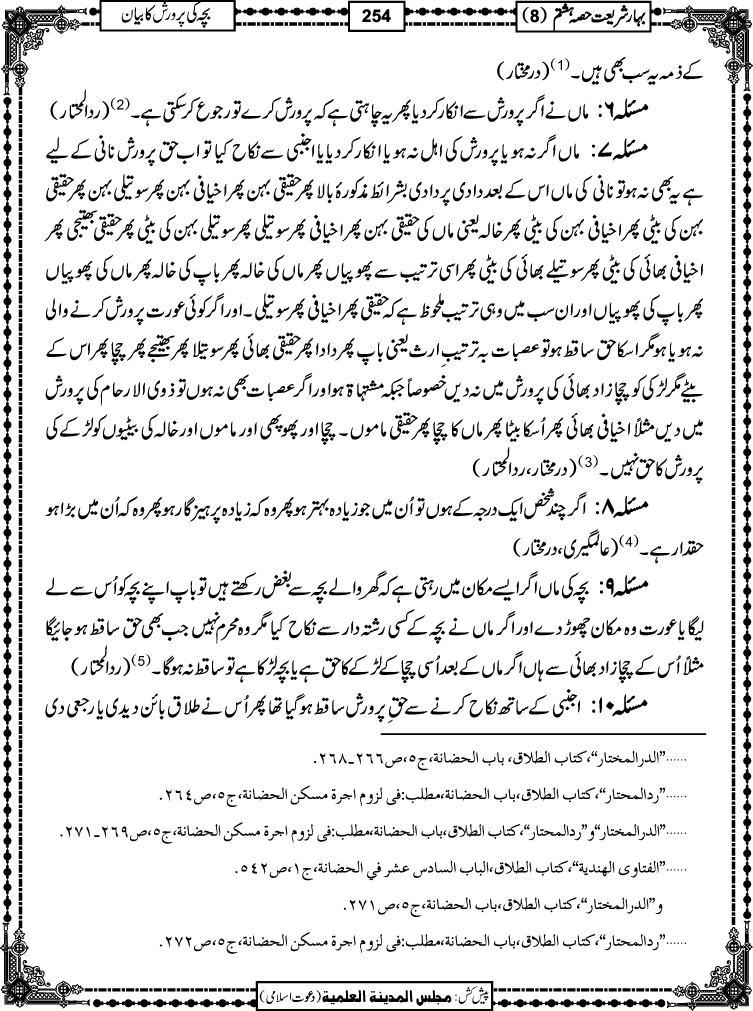 بہارِ شریعت حصہ ہشتم (8)
254
بچہ کی پرورش کا بیان
کے ذمہ یہ سب بھی ہیں۔(1) (درمختار)
مسئلہ ۶: ماں نے اگر پرورش سے انکار کر دیا پھر یہ چاہتی ہے کہ پرورش کرے تو رجوع کر سکتی ہے۔(2) (ردالمحتار)
مسئلہ ۷: ماں اگر نہ ہو یا پرورش کی اہل نہ ہو یا انکار کر دیا یا اجنبی سے نکاح کیا تو اب حق پرورش نانی کے لیے
ہے یہ بھی نہ ہو تو نانی کی ماں اس کے بعد دادی پردادی بشرائط مذکورۂ بالا پھر حقیقی بہن پھر اخیافی بہن پھر سوتیلی بہن پھر حقیقی
بہن کی بیٹی پھر اخیافی بہن کی بیٹی پھر خالہ یعنی ماں کی حقیقی بہن پھر اخیافی پھر سوتیلی پھر سوتیلی بہن کی بیٹی پھر حقیقی بھتیجی پھر
اخیافی بھائی کی بیٹی پھر سوتیلے بھائی کی بیٹی پھر اسی ترتیب سے پھوپیاں پھر ماں کی خالہ پھر باپ کی خالہ پھر ماں کی پھوپیاں
پھر باپ کی پھوپیاں اور ان سب میں وہی ترتیب ملحوظ ہے کہ حقیقی پھر اخیافی پھر سوتیلی۔ اور اگر کوئی عورت پرورش کرنے والی
نہ ہو یا ہو مگر اسکا حق ساقط ہو تو عصبات بہ ترتیبِ ارث یعنی باپ پھر دادا پھر حقیقی بھائی پھر سوتیلا پھر بھتیجے پھر چچا پھر اس کے
بیٹے مگر لڑکی کو چچا زاد بھائی کی پرورش میں نہ دیں خصوصاً جبکہ مشتہاۃ ہو اور اگر عصبات بھی نہ ہوں تو ذوی الارحام کی پرورش
میں دیں مثلاً اخیافی بھائی پھر اُسکا بیٹا پھر ماں کا چچا پھر حقیقی ماموں۔ چچا اور پھوپھی اور ماموں اور خالہ کی بیٹیوں کو لڑکے کی
پرورش کا حق نہیں۔(3) (درمختار، ردالمحتار)
مسئلہ ۸: اگر چند شخص ایک درجہ کے ہوں تو اُن میں جو زیادہ بہتر ہو پھر وہ کہ زیادہ پرہیزگار ہو پھر وہ کہ اُن میں بڑا ہو
حقدار ہے۔(4) (عالمگیری، درمختار)
مسئلہ ۹: بچہ کی ماں اگر ایسے مکان میں رہتی ہے کہ گھر والے بچہ سے بغض رکھتے ہیں تو باپ اپنے بچہ کو اُس سے لے
لیگا یا عورت وہ مکان چھوڑ دے اور اگر ماں نے بچہ کے کسی رشتہ دار سے نکاح کیا مگر وہ محرم نہیں جب بھی حق ساقط ہو جائیگا
مثلاً اُس کے چچا زاد بھائی سے ہاں اگر ماں کے بعد اُسی چچا کے لڑکے کا حق ہے یا بچہ لڑکا ہے تو ساقط نہ ہوگا۔(5) (ردالمحتار)
مسئلہ ۱۰: اجنبی کے ساتھ نکاح کرنے سے حقِ پرورش ساقط ہو گیا تھا پھر اُس نے طلاق بائن دیدی یا رجعی دی
......”الدرالمختار“،کتاب الطلاق، باب الحضانة،ج۵،ص۲۶۶۔۲۶۸.
......”ردالمحتار“،کتاب الطلاق،باب الحضانة،مطلب:فی لزوم اجرة مسکن الحضانة،ج۵،ص۲۶۴.
......”الدرالمختار“و”ردالمحتار“،کتاب الطلاق،باب الحضانة،مطلب:فی لزوم اجرة مسکن الحضانة،ج۵،ص۲۶۹۔۲۷۱.
......”الفتاوی الهندیة“،کتاب الطلاق،الباب السادس عشر في الحضانة،ج۱،ص۵۴۲.
و”الدرالمختار“،کتاب الطلاق،باب الحضانة،ج۵،ص۲۷۱.
......”ردالمحتار“،کتاب الطلاق،باب الحضانة،مطلب:فی لزوم اجرة مسکن الحضانة،ج۵،ص۲۷۲.
پیش کش: مجلس المدینة العلمیة (دعوتِ اسلامی)